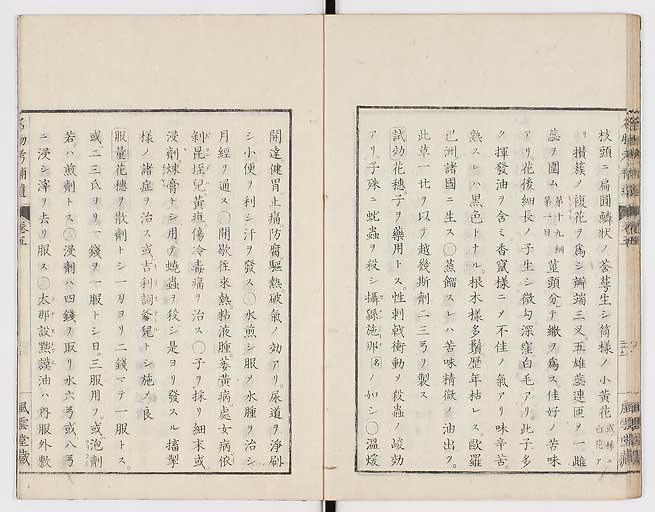 枝頭ニ扁圓鱗狀ノ萼葶生シ筒樣ノ小黄花或稀ニ白花ア
リ攅簇ノ複花ヲ爲シ瓣端三叉五雄蕊連匝ヲ一雌
蕊ヲ圍ム第十九綱第一目萆頭分テ繖ヲ爲ス佳好ノ苦味
アリ花後細長ノ子生シ微勾深窪白毛アリ此子多
ク揮發油ヲ含ミ香竄樣ニノ不佳ノ氣アリ味辛苦
熟スレハ黒色トナル。根木樣多鬚歴年枯レス。歐羅
巴洲諸國ニ生ス○蒸餾スレハ苦味精微ノ油出ツ。
此草一十匕ヲ以テ越幾斯劑二三弓ヲ製ス
試効花穗子ヲ藥用トス性刺戟衝動ヲ殺蟲ノ峻効
アリ。子殊ニ蚘蟲ヲ殺シ攝綿施那名ノ如シ○温煖
開達健胃止痛防腐。驅熱破氣ノ効アリ。尿道ヲ淨刷
シ小便ヲ利シ汗ヲ發ス○水煎シ服ノ水腫ヲ治シ
月經ヲ通ス○間歇往來熱粘液腫萎黄病處女病依
剝昆垤兒黄疸傷冷毒痛ヲ治ス○子ヲ採リ細末或
浸劑煉膏トシ用テ蟯蟲ヲ殺シ是ヨリ發スル搐掣
樣ノ諸症ヲ治ス或吉利詞篤兒トシ施ノ良
服量花穗ヲ散劑トシ一刄ヨリ二錢マテ一服トス。
或二三氏ヨリ一錢ヲ一服トシ日。三服用フ。或泡劑
若ハ煎劑トス○浸劑ハ四錢ヲ取リ水六弓或八弓
ニ浸シ滓ヲ去リ服ス○太那設黙謨油ハ內服外敷
名物考補遺
卷五
風雲堂藏